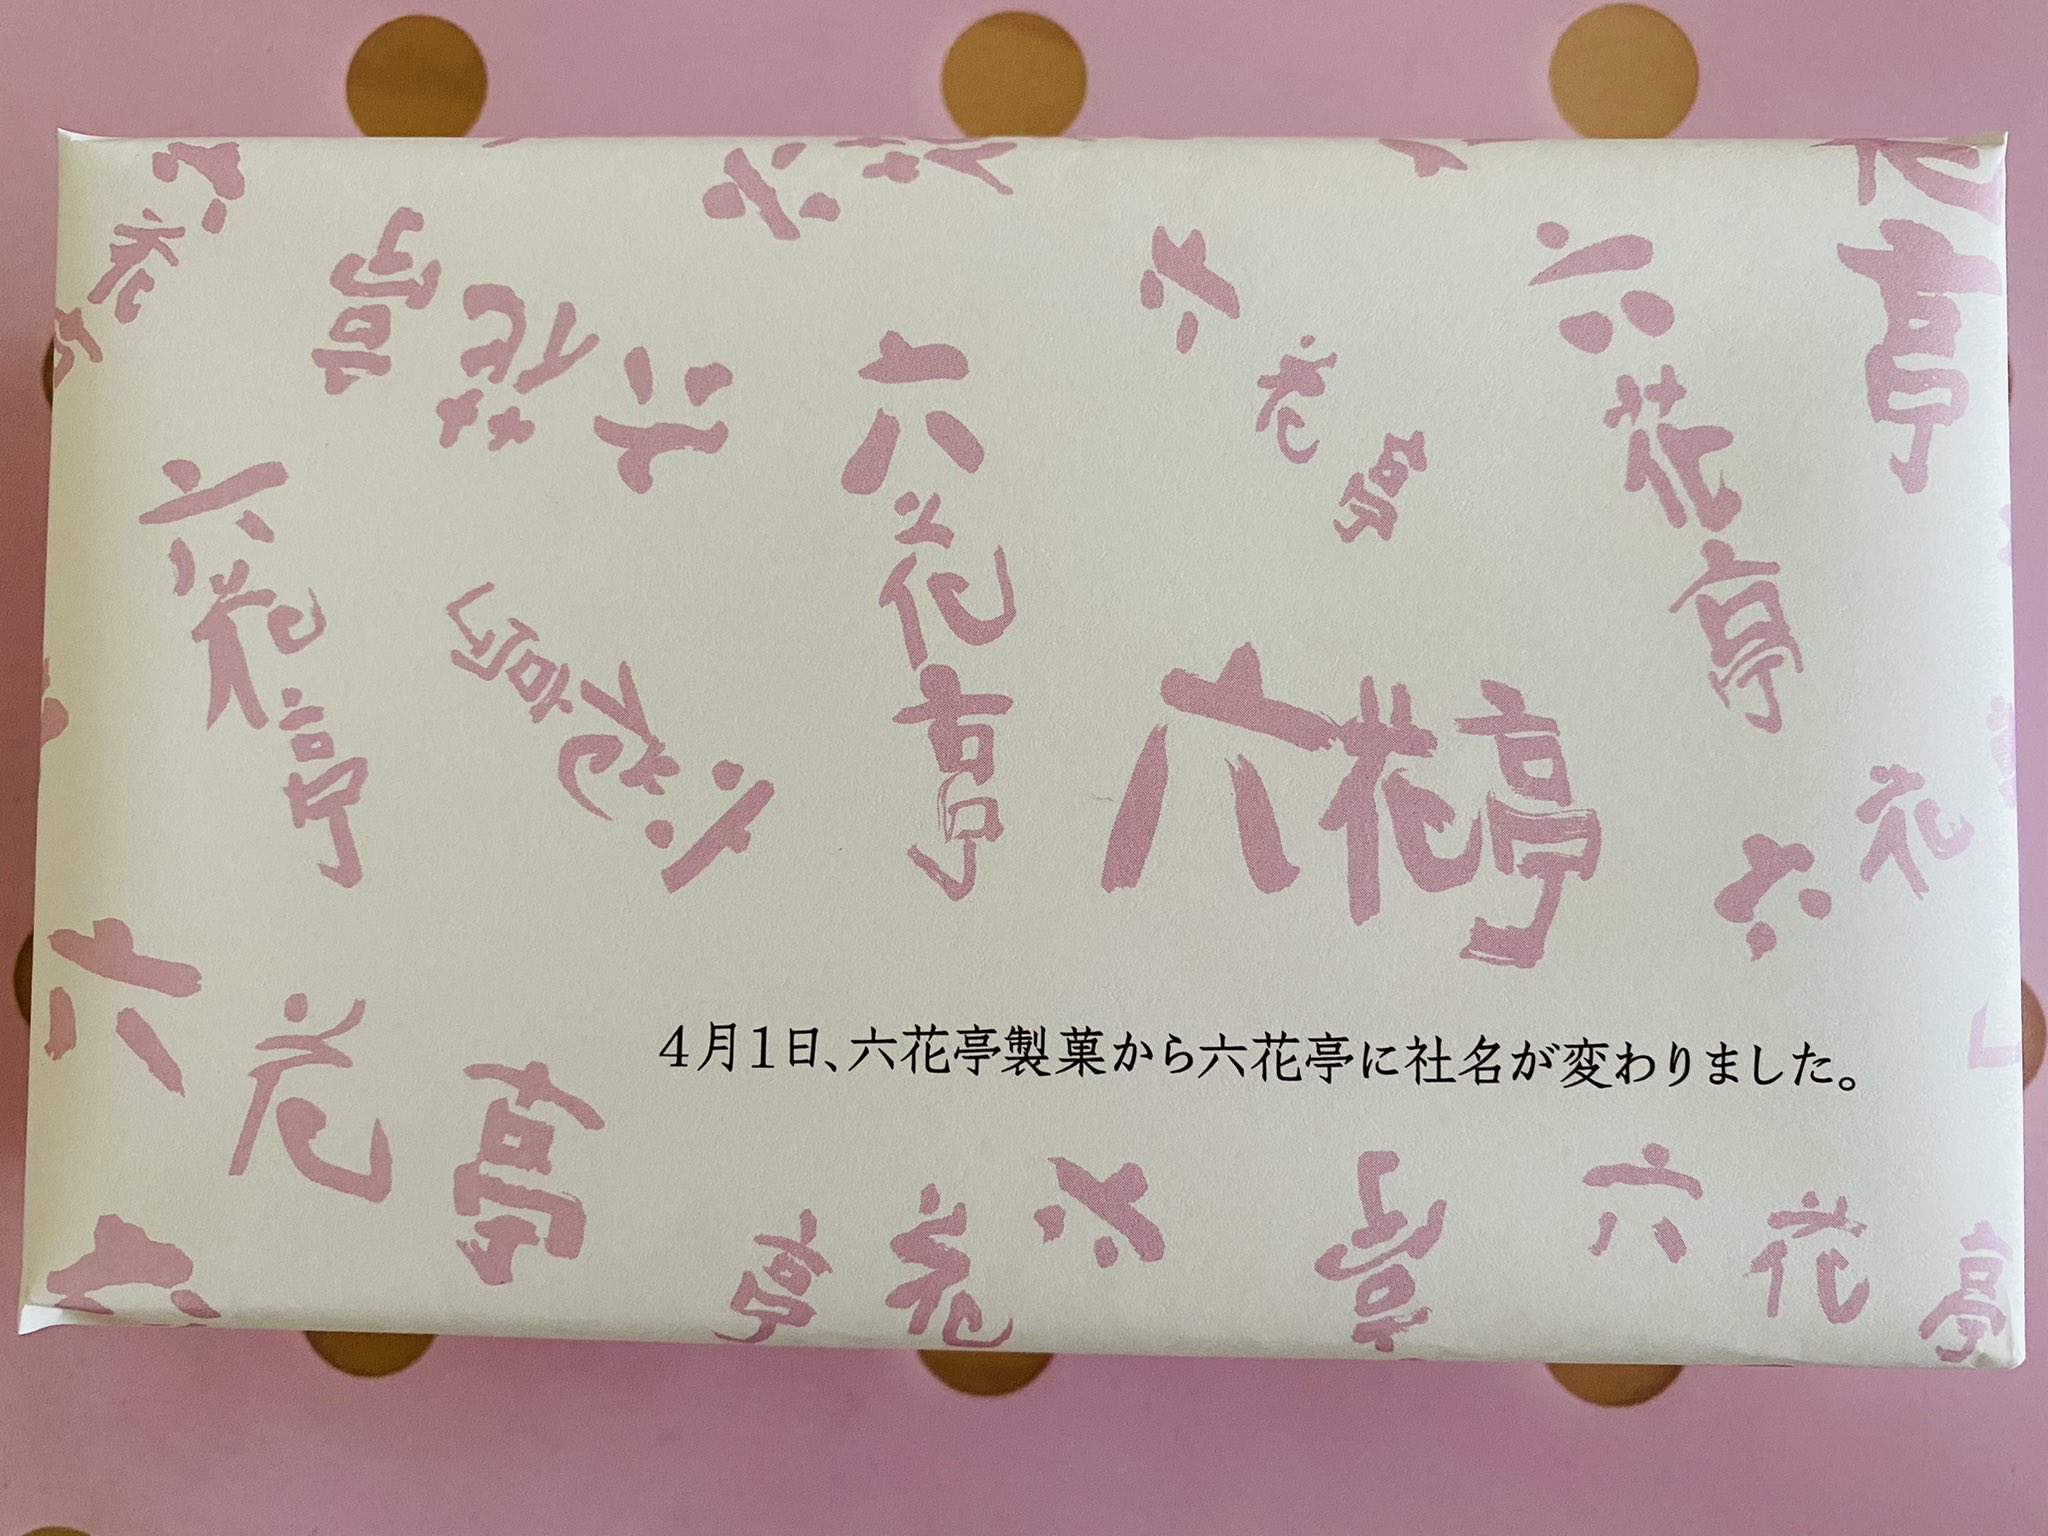 六花亭
六花亭
六花亭
六花亭
六花亭
六花亭
六花亭
六花亭
4月1日、六花亭製菓から六花亭に社名が変わりました。
六花亭
六花亭
六花亭
亭
六
六花
亭
六